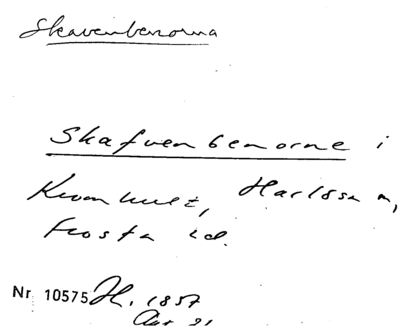 Skavenbenorna
Skafvenbenorne i
Kvarnhult, Harlösa sn,
Frosta hd.
Nr 10575 H. 1857